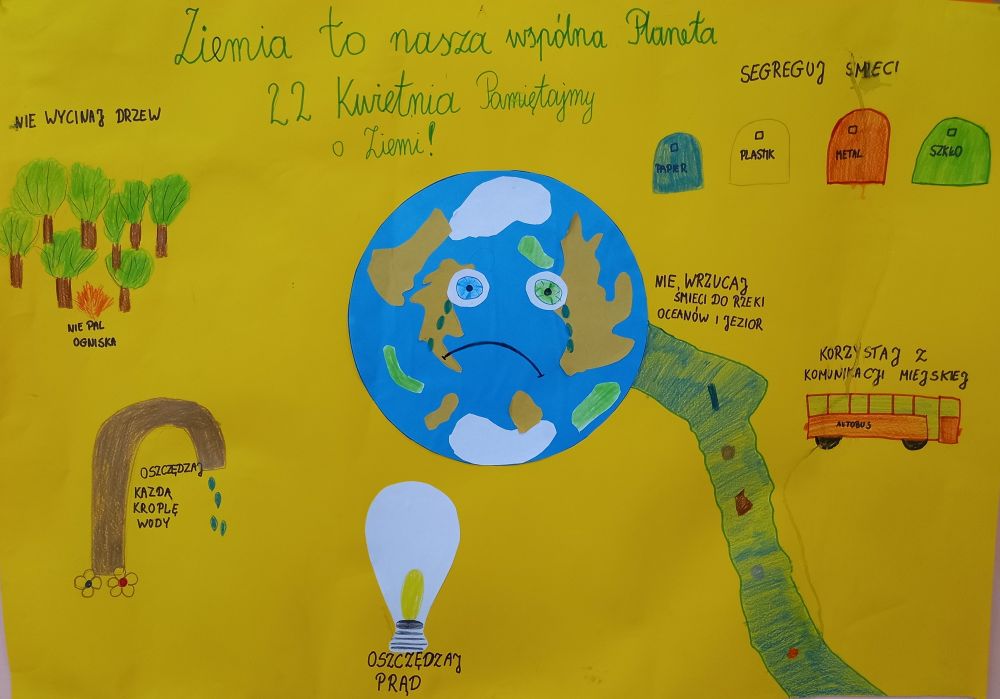 Ziemia to nasza wspólna Planeta
22 Kwietnia Pamiętajmy
o Ziemi!
NIE WYCINAJ DRZEW
SEGREGUJ ŚMIECI
PAPIER
PLASTIK
METAL
SZKŁO
NIE PAL
OGNISKA
NIE WRZUCAJ
ŚMIECI DO RZEKI
OCEANÓW I JEZIOR
KORZYSTAJ Z
KOMUNIKACJI MIEJSKIEJ
AUTOBUS
OSZCZĘDZAJ
KAŻDĄ
KROPLĘ
WODY
OSZCZĘDZAJ
PRĄD